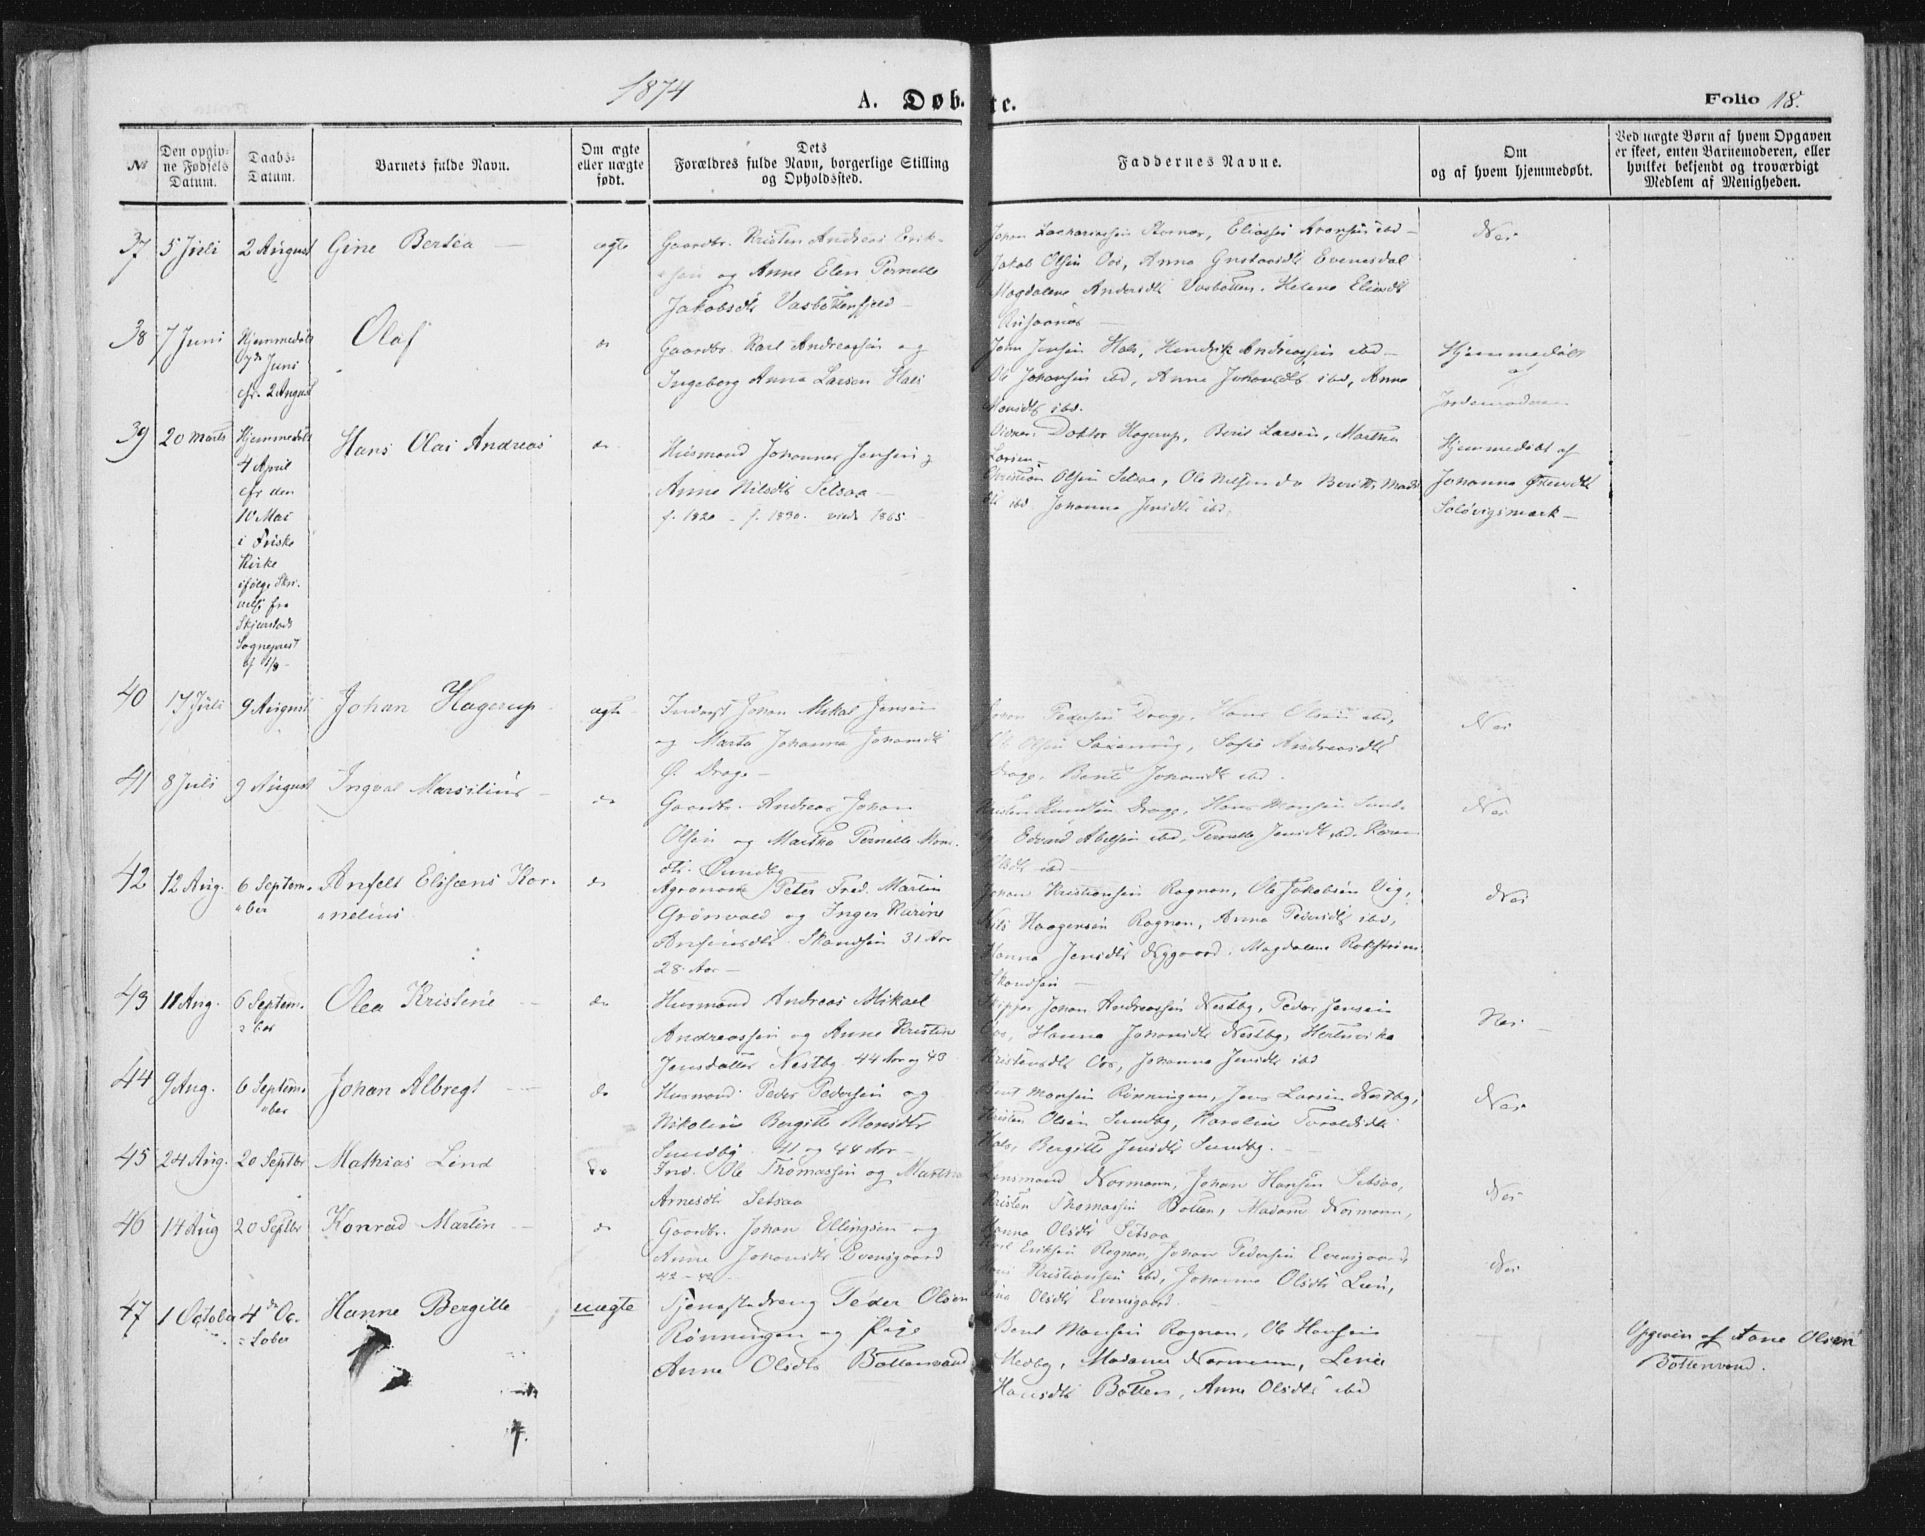 1874
A. Døb- te.
Folio 18.
№
Den opgiv-
ne Fødsels
Datum.
Daabs-
Datum.
Barnets fulde Navn.
Om ægte
eller uægte
født.
Dets
Forældres fulde Navn, borgerlige Stilling
og Opholdssted.
Faddernes Navne.
Om
og af hvem hjemmedøbt.
Ved uægte Børn af hvem Opgaven
er skeet, enten Barnemoderen, eller
hvilket bekjendt og troværdigt
Medlem af Menigheden.
37 5 Juli 2 August Gine Bertea ægte
Gaardbr. Kristen Andreas Erik-
sen og Anne Elen Pernelle
Jakobsdt Vasbottenfjeld
Johan Zachariassen Stornes, Elias Aronsen ibd
Jakob Olsen Os, Anna Gustavsdt Evenesdal
Magdalene Andersdt Vasbotten, Helene Eliasdt
Nei
38 7 Juni Hjemmedøbt
7de Juni
cfr. 2 August
Olaf do
Gaardbr. Karl Andreassen og
Ingeborg Anna Larsen Hals
John Jensen Hals, Hendrik Andreassen ibd
Ole Johansen ibd, Anne Johansdt ibd, Anne
Monsdt ibd.
Hjemmedøbt
af
Jordemoderen
39 20 Marts Hjemmedøbt
4 April
cfr den
10 Mai
i Friske
Kirke
ifølge Skri-
velse fra
Skjerstads
Sogneprest
af 11/8
Hans Olai Andreas do
Husmand Johannes Jensen og
Anne Nilsdt Setsaa
f. 1820 - f. 1830. viede 1865.
Doktor Hagerup, Berit Larsen, Martha
Larsen
Christian Olsen Setsaa, Ole Nilsen do Berith Mads
dt ibd Johanna Jensdt ibd.
Hjemmedøbt af
Johanna Østensdt
Solövigsmark
40 17 Juli 9 August Johan Hagerup ægte
Inderst Johan Mikal Jensen
og Marta Johanna Johansdt
Ø. Drage
Johan Pedersen Drage, Hans Olsen ibd,
Ole Olsen Saxenvig, Sofie Andreasdt
Drage, Berit Johansdt ibd.
Nei
41 8 Juli 9 August Ingval Marsilius do
Gaardbr. Andreas Johan
Olsen og Martha Pernelle Mons-
dt. Sundby
Kristen Knudsen Drage, Hans Monsen Sund-
by, Edvard Abelsen ibd, Pernelle Jensdt ibd. Karen
Olsdt ibd
Nei
42 12 Aug. 6 Septem-
ber
Anfelt Elisæus Kor-
nelius
do
Agronom Peter Fred. Martin
Grønvold og Inger Karine
Anfinsdt. Skandsen 31 Aar
28. Aar
Johan Kristiansen Rognan, Ole Jakobsen Vig,
Nils Haagensen Rognan, Anna Pedersdt ibd,
Hanna Jensdt Nygaard, Magdalene
Skandsen
Nei
43 11 Aug. 6 Septem-
ber
Olea Kristine do
Husmand Andreas Mikael
Andreassen og Anne Kristine
Jensdatter Nestby. 44 Aar og 43
Skipper Johan Andreassen Nestby, Peder Jensen
Os, Hanna Johansdt Nestby, Hertsvika
Kristensdt Os, Johanna Jensdt ibd
Nei
44 9 Aug. 6 Septem-
ber
Johan Albregt do
Husmand Peder Pedersen og
Nikoline Bergitte Monsdt
Sundby. 41 og 44 Aar
Bent Monsen Rønningen, Jens Larsen Nestby,
Kristen Olsen Sundby, Karoline Toraldsdt
Hals, Bergitte Jensdt Sundby.
Nei
45 24 Aug. 20 Septbr Mathias Lind do
Ind. Ole Thomassen og Martha
Arnesdt Setsaa
Lensmand Normann, Johan Hansen Setsaa,
Kristen Thomassen Botten, Madam Normann,
Hanna Olsdt Setsaa
Nei
46 14 Aug 20 Septbr Konrad Martin do
Gaardbr. Johan Ellingsen og
Anne Johansdt Evensgaard
42 - 42
Karl Eriksen Rognan, Johan Pedersen Evensgaard
Kristiansen ibd, Johanna Olsdt Lien,
Olsdt Evensgaard.
Nei
47 1 October 4de Oc-
tober
Hanne Bergitte uægte
Tjenestedreng Peder Olsen
Rønningen og Pige
Anne Olsdt Bottenvand
Bent Monsen Rognan, Ole Hansen
Medby, Madame Normann, Lene
Hansdt Botten, Anne Olsdt ibd
Opgiven af Aane Olsen
Bottenvand.